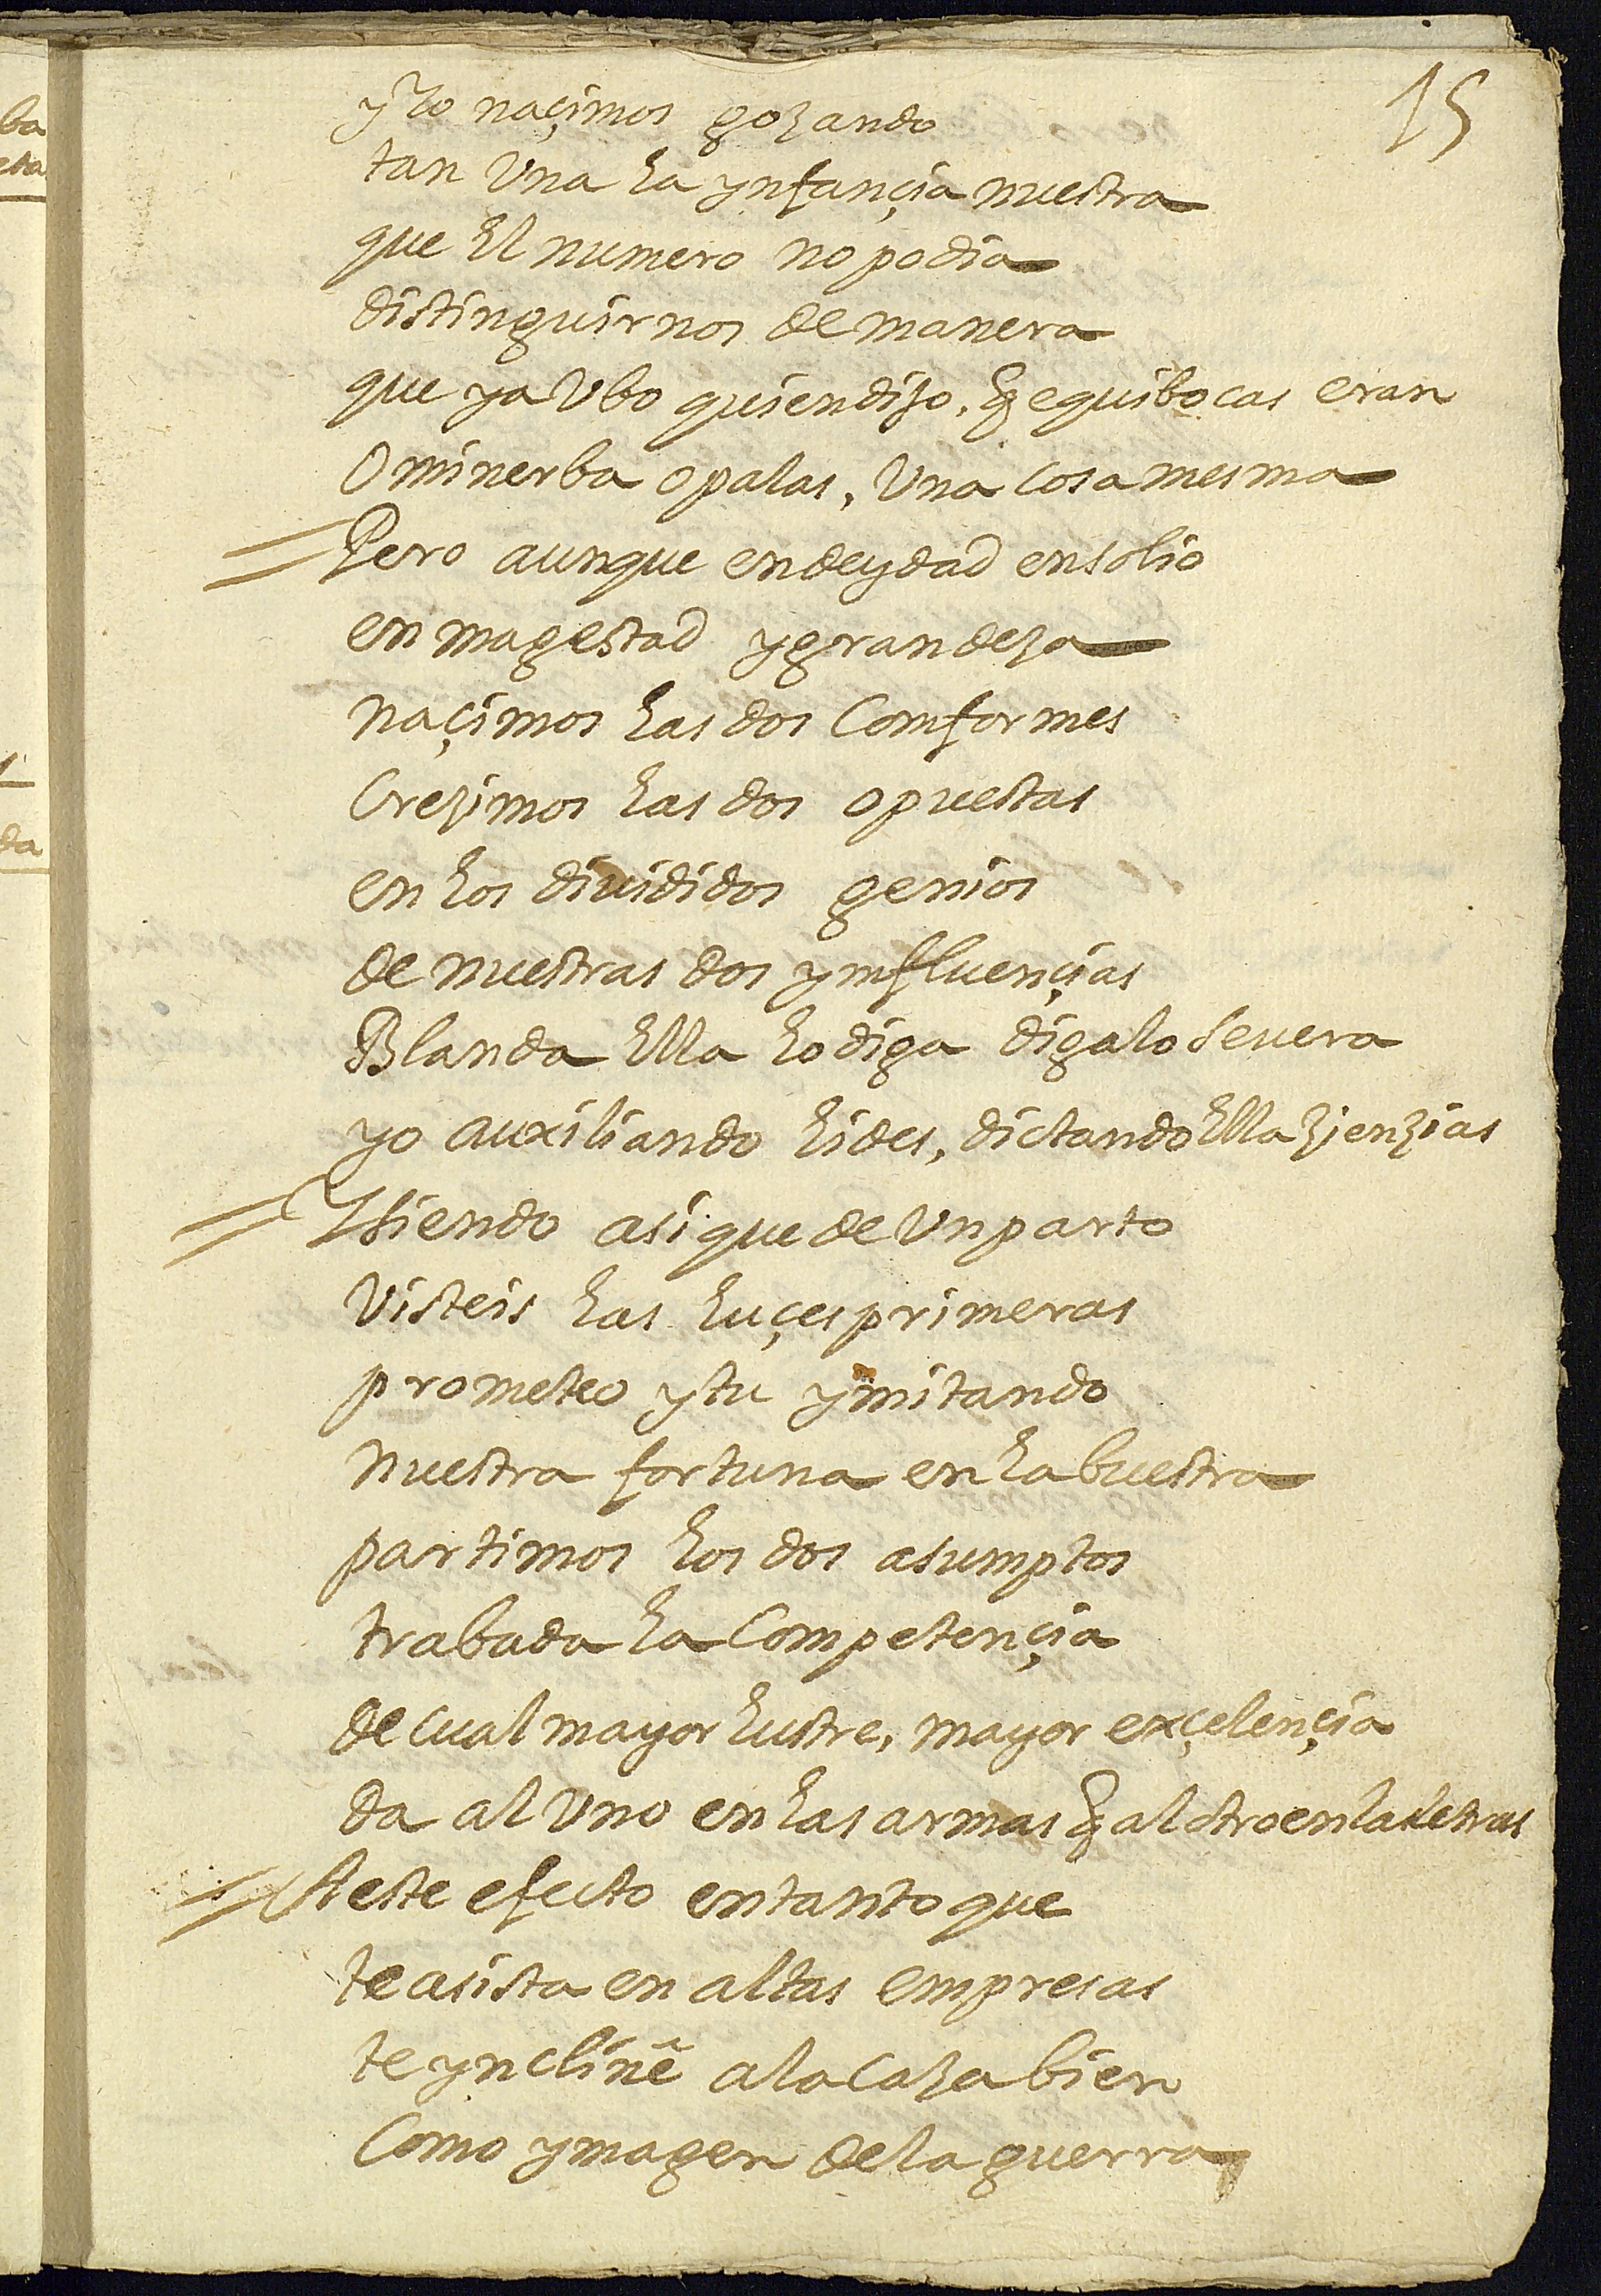 15
y yo naçimos gozando
tan Vna la ynfançia nuestra
que El numero no podia
distinguirnos de manera
que ya Vbo quien dijo, q equibocas eran
O minerba o palas, Vna cosa mesma
Pero aunque en deydad en solio
en magestad y grandeza
naçimos las dos Comformes
Crezimos las dos opuestas
en los divididos genios
de nuestras dos ynfluençias
Blanda Ella lo diga digalo severa
yo auxiliando lides, dictando Ella zienzias
Y siendo asi que de Vn parto
Visteis las luçes primeras
prometeo y tu ymitando
nuestra fortuna en la buestra
partimos los dos asumptos
trabada la Competençia
de cual mayor lustre, mayor exçelençia
da al Vno en las armas q al otro en las letras
A este efecto en tanto que
te asista en altas empresas
te yncliné a la Caza bien
Como ymagen de la guerra